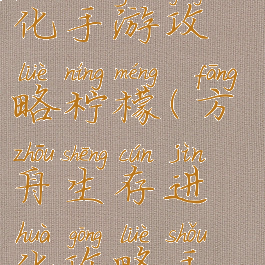 化手游攻
lüè níng méng fāng
略柠檬(方
zhōu shēng cún jìn
舟生存进
huà gōng lüè shǒu
化攻略手